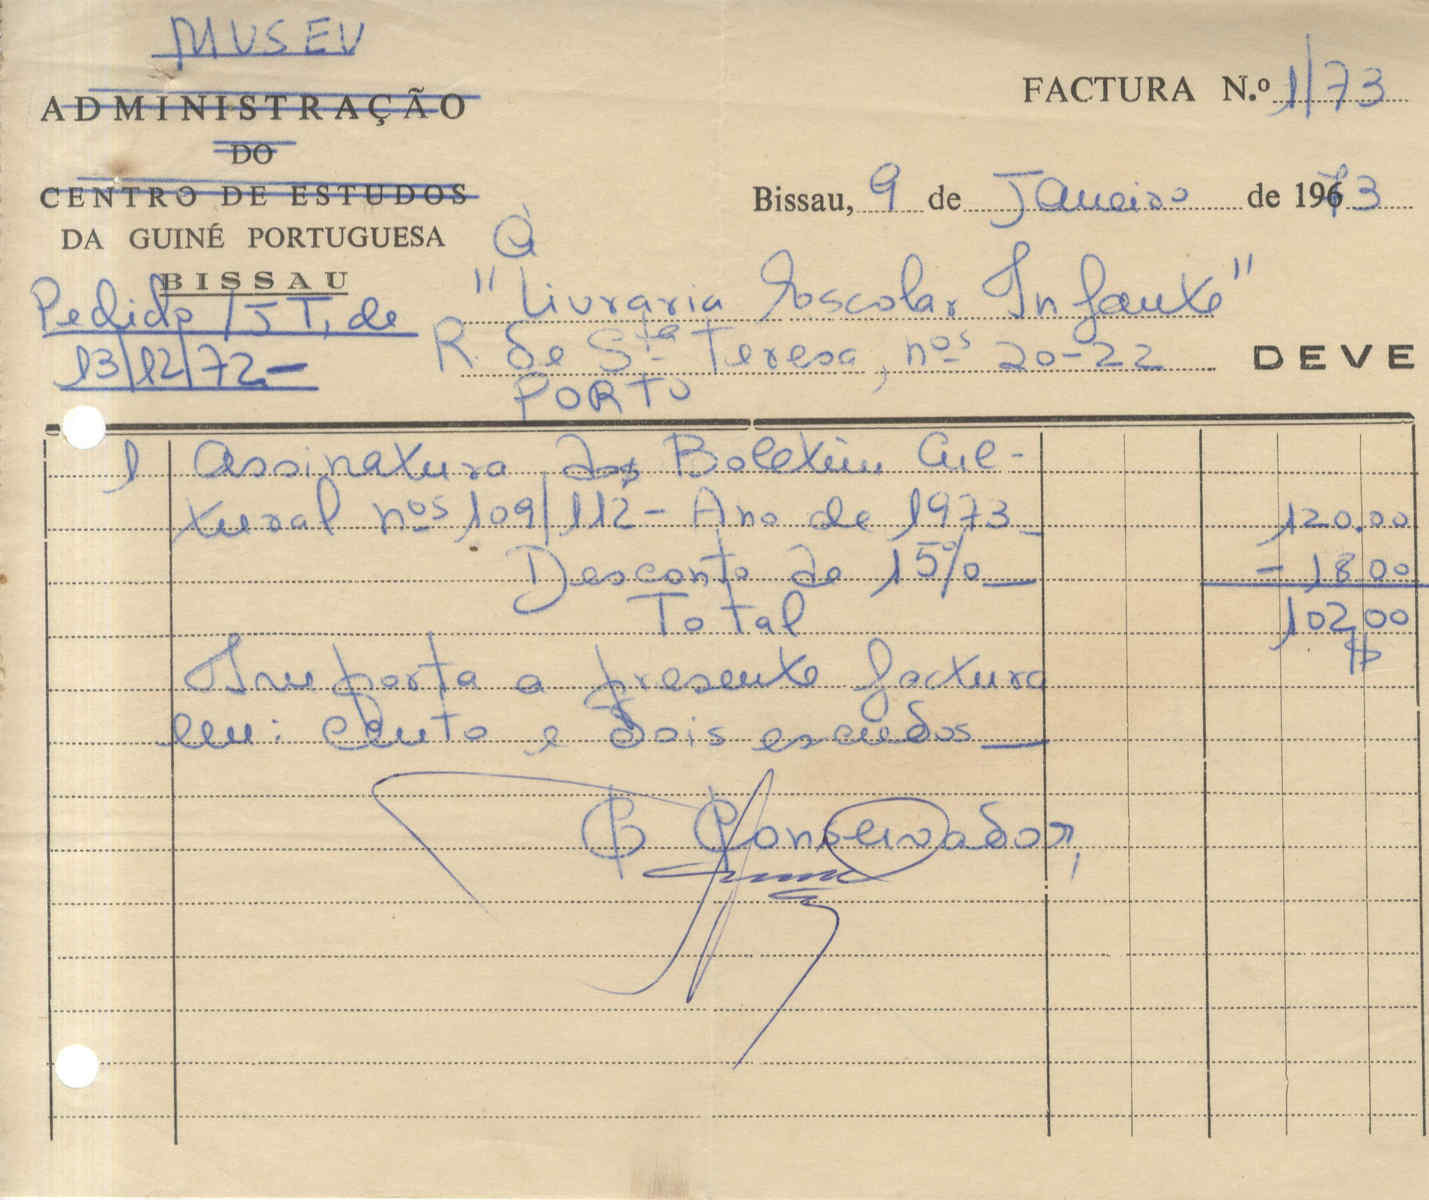 MUSEU
ADMINISTRAÇÃO
DO
CENTRO DE ESTUDOS
DA GUINÉ PORTUGUESA
BISSAU
Pedido /JT, de
13/12/72.-
FACTURA N.º 1/73
Bissau, 9 de Janeiro de 1973
À
"Livraria Escolar Infante"
R. de Sta Teresa, nos 20-22
PORTO
DEVE
1 Assinatura dos Boletim Cul-
tural nos 109/112 - Ano de 1973 120.00
Desconto de 15% - 18.00
Total 102$00
Importa a presente factura
em: Cento e dois escudos
O Conservador,